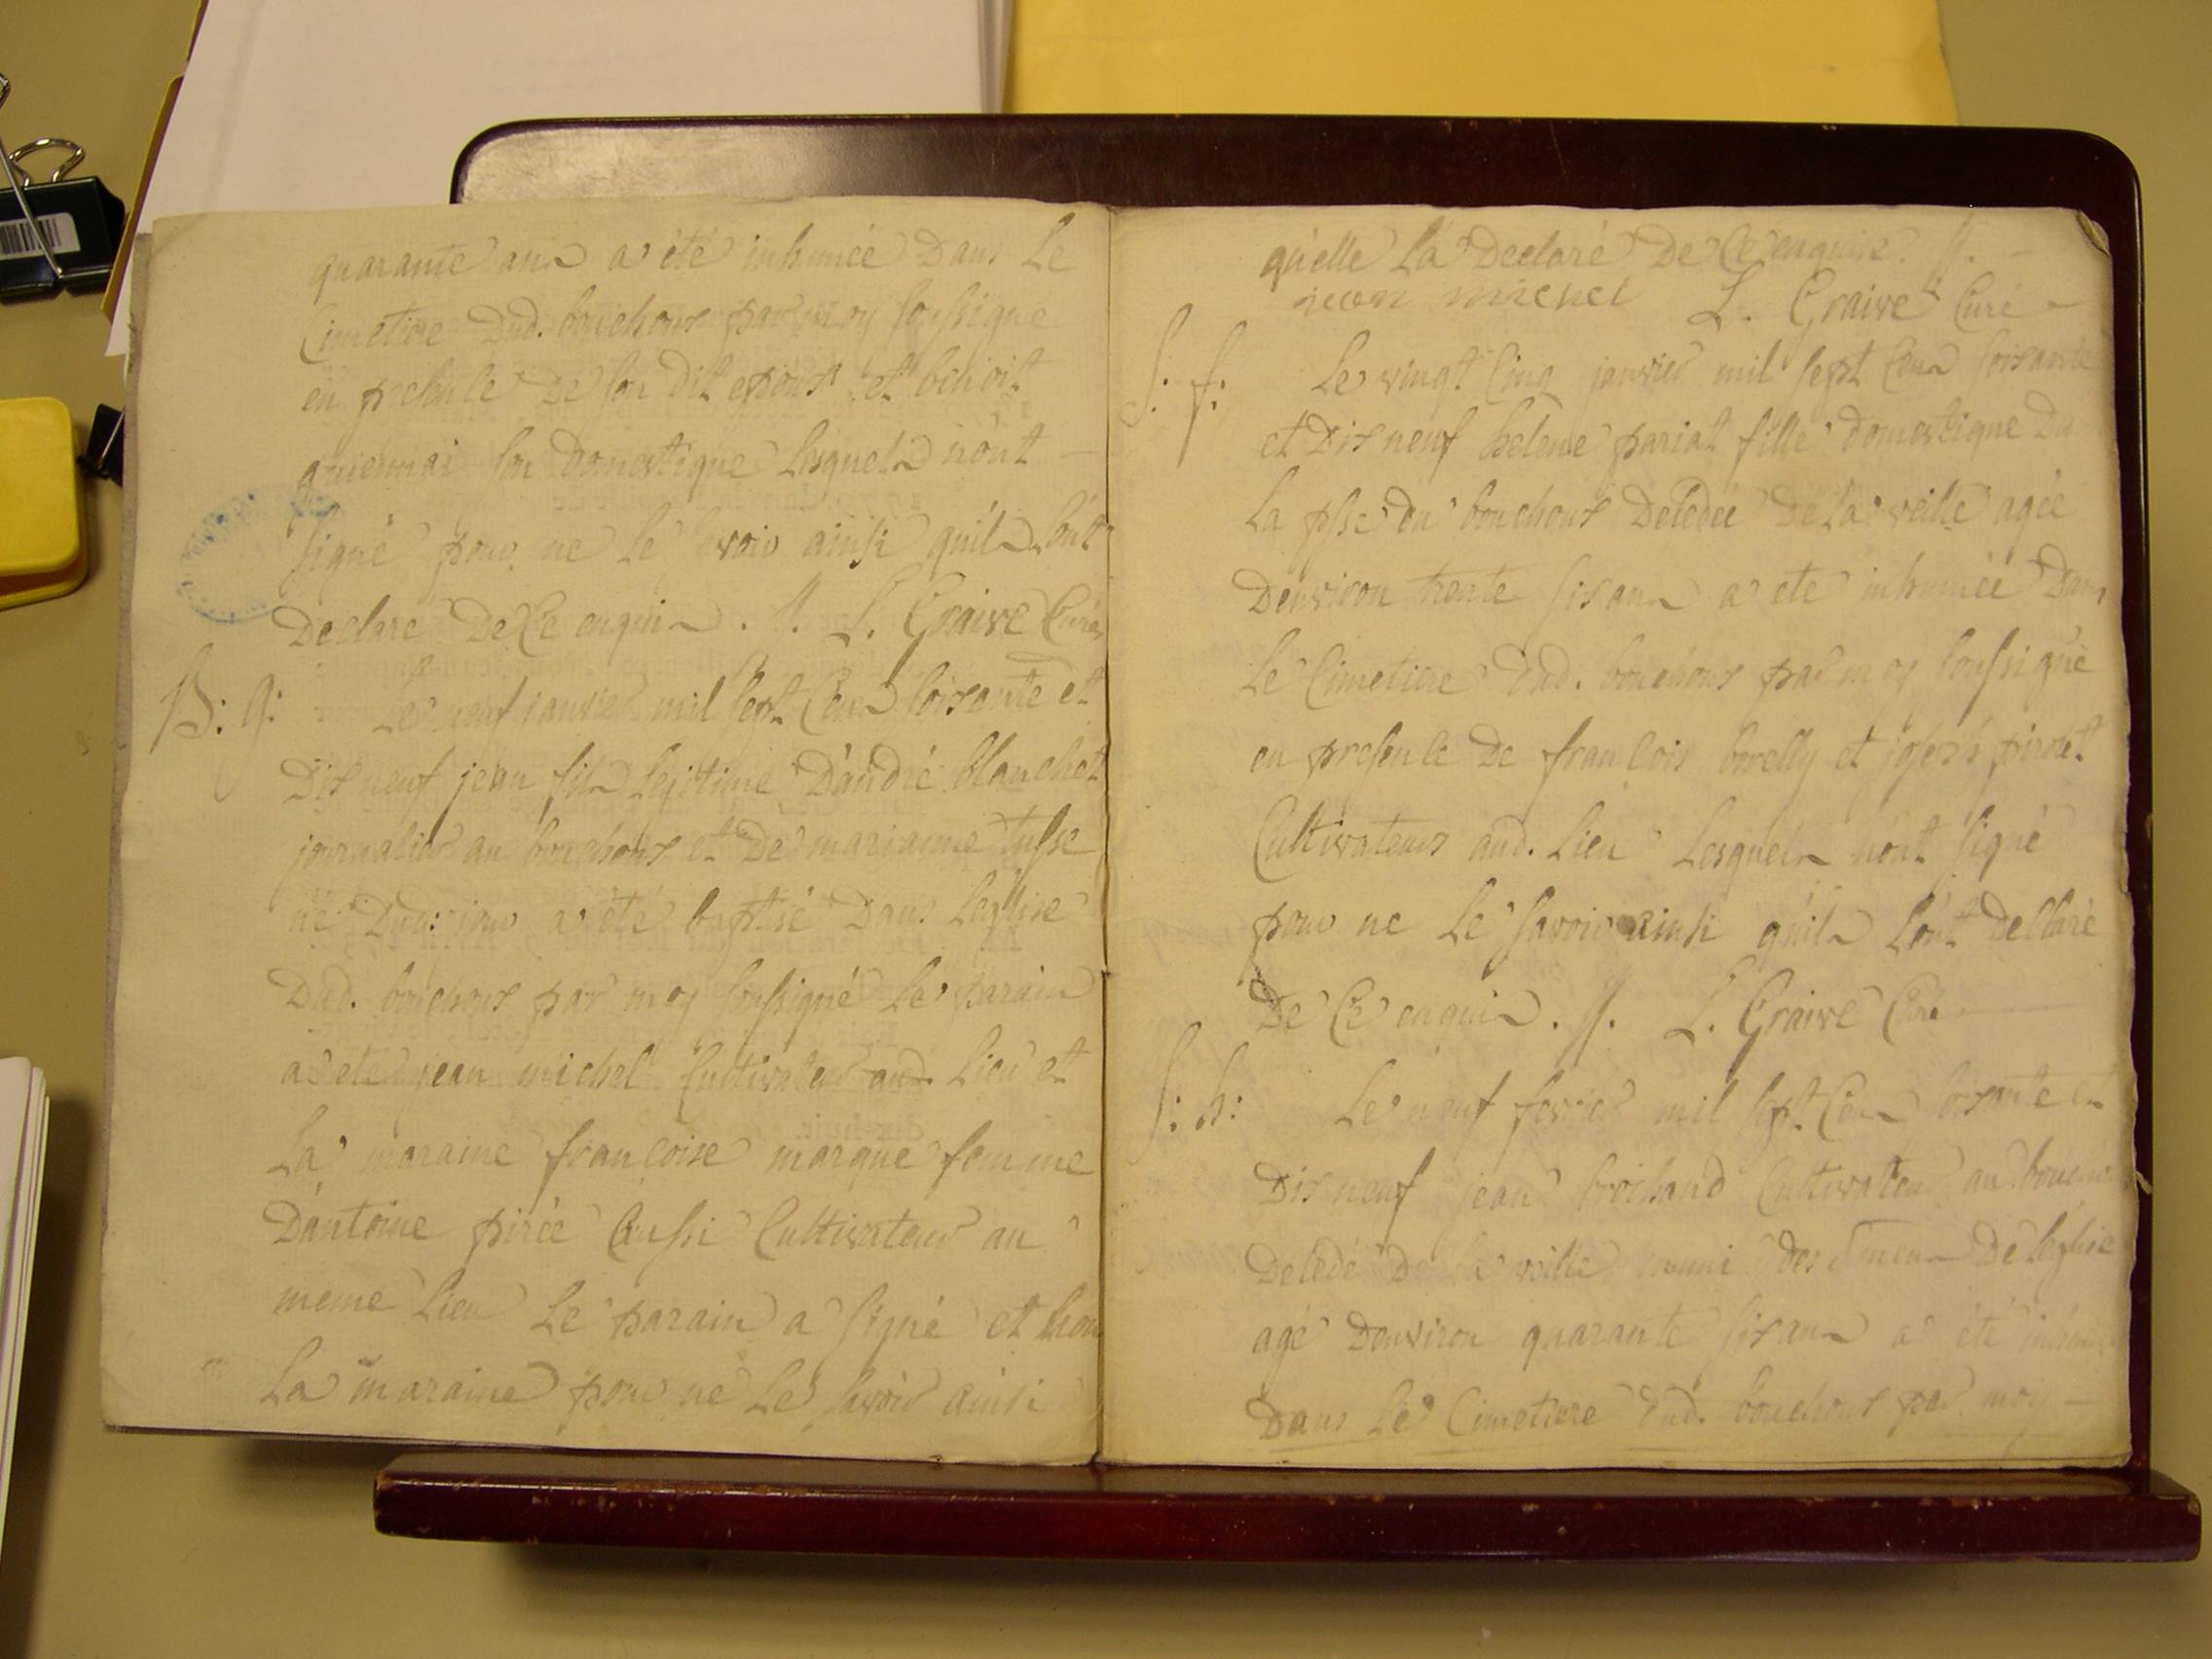 quarante ans a été inhumée Dans Le
Cimetiere Dud. bouchoux par moy soussigné
en presence De son dit epoux et benoit
son Domestique Lesquels n'ont
signé pour ne le savoir ainsi quils l'ont
Declaré De Ce enquis. //. L. Graive Curé
B: g: Le neuf janvier mil sept Cens soixante et
Dix neuf jean fils Legitime D'andré blanchet
journalier au bouchoux et De marianne tusse
né Dud: jour a été baptisé Dans L'eglise
Dud. bouchoux par moy soussigné Le parain
a été jean michel Cultivateur aud. Lieu et
La maraine françoise marque femme
D'antoine pirée aussi Cultivateur au
meme Lieu Le parain a signé et non
La maraine pour ne Le savoir ainsi
qu'elle L'a Declaré De Ce enquise. //. -
jean michel L. Graive Curé
S. f. Le vingt Cinq janvier mil sept Cens soixante
et Dix neuf helene pariat fille domestique Du
La psse du bouchoux Decedée De La veille agée
D'environ trente six ans a eté inhumée Dans
Le Cimetiere Dud. bouchoux par moy soussigné
en presence De francois borelly et joseph pirotet
Cultivateurs aud. Lieu Lesquels n'ont signé
pour ne Le savoir ainsi qu'ils L'ont Declaré
De Ce enquis. //. L. Graive Curé
S: h: Le neuf fevrier mil sept Cens soixante et
Dix neuf jean brochand Cultivateur au bouchoux
Decedé De la veille muni des Smens De L'eglise
agé D'environ quarante six ans a été inhumé
Dans Le Cimetiere Dud. bouchoux par moy -